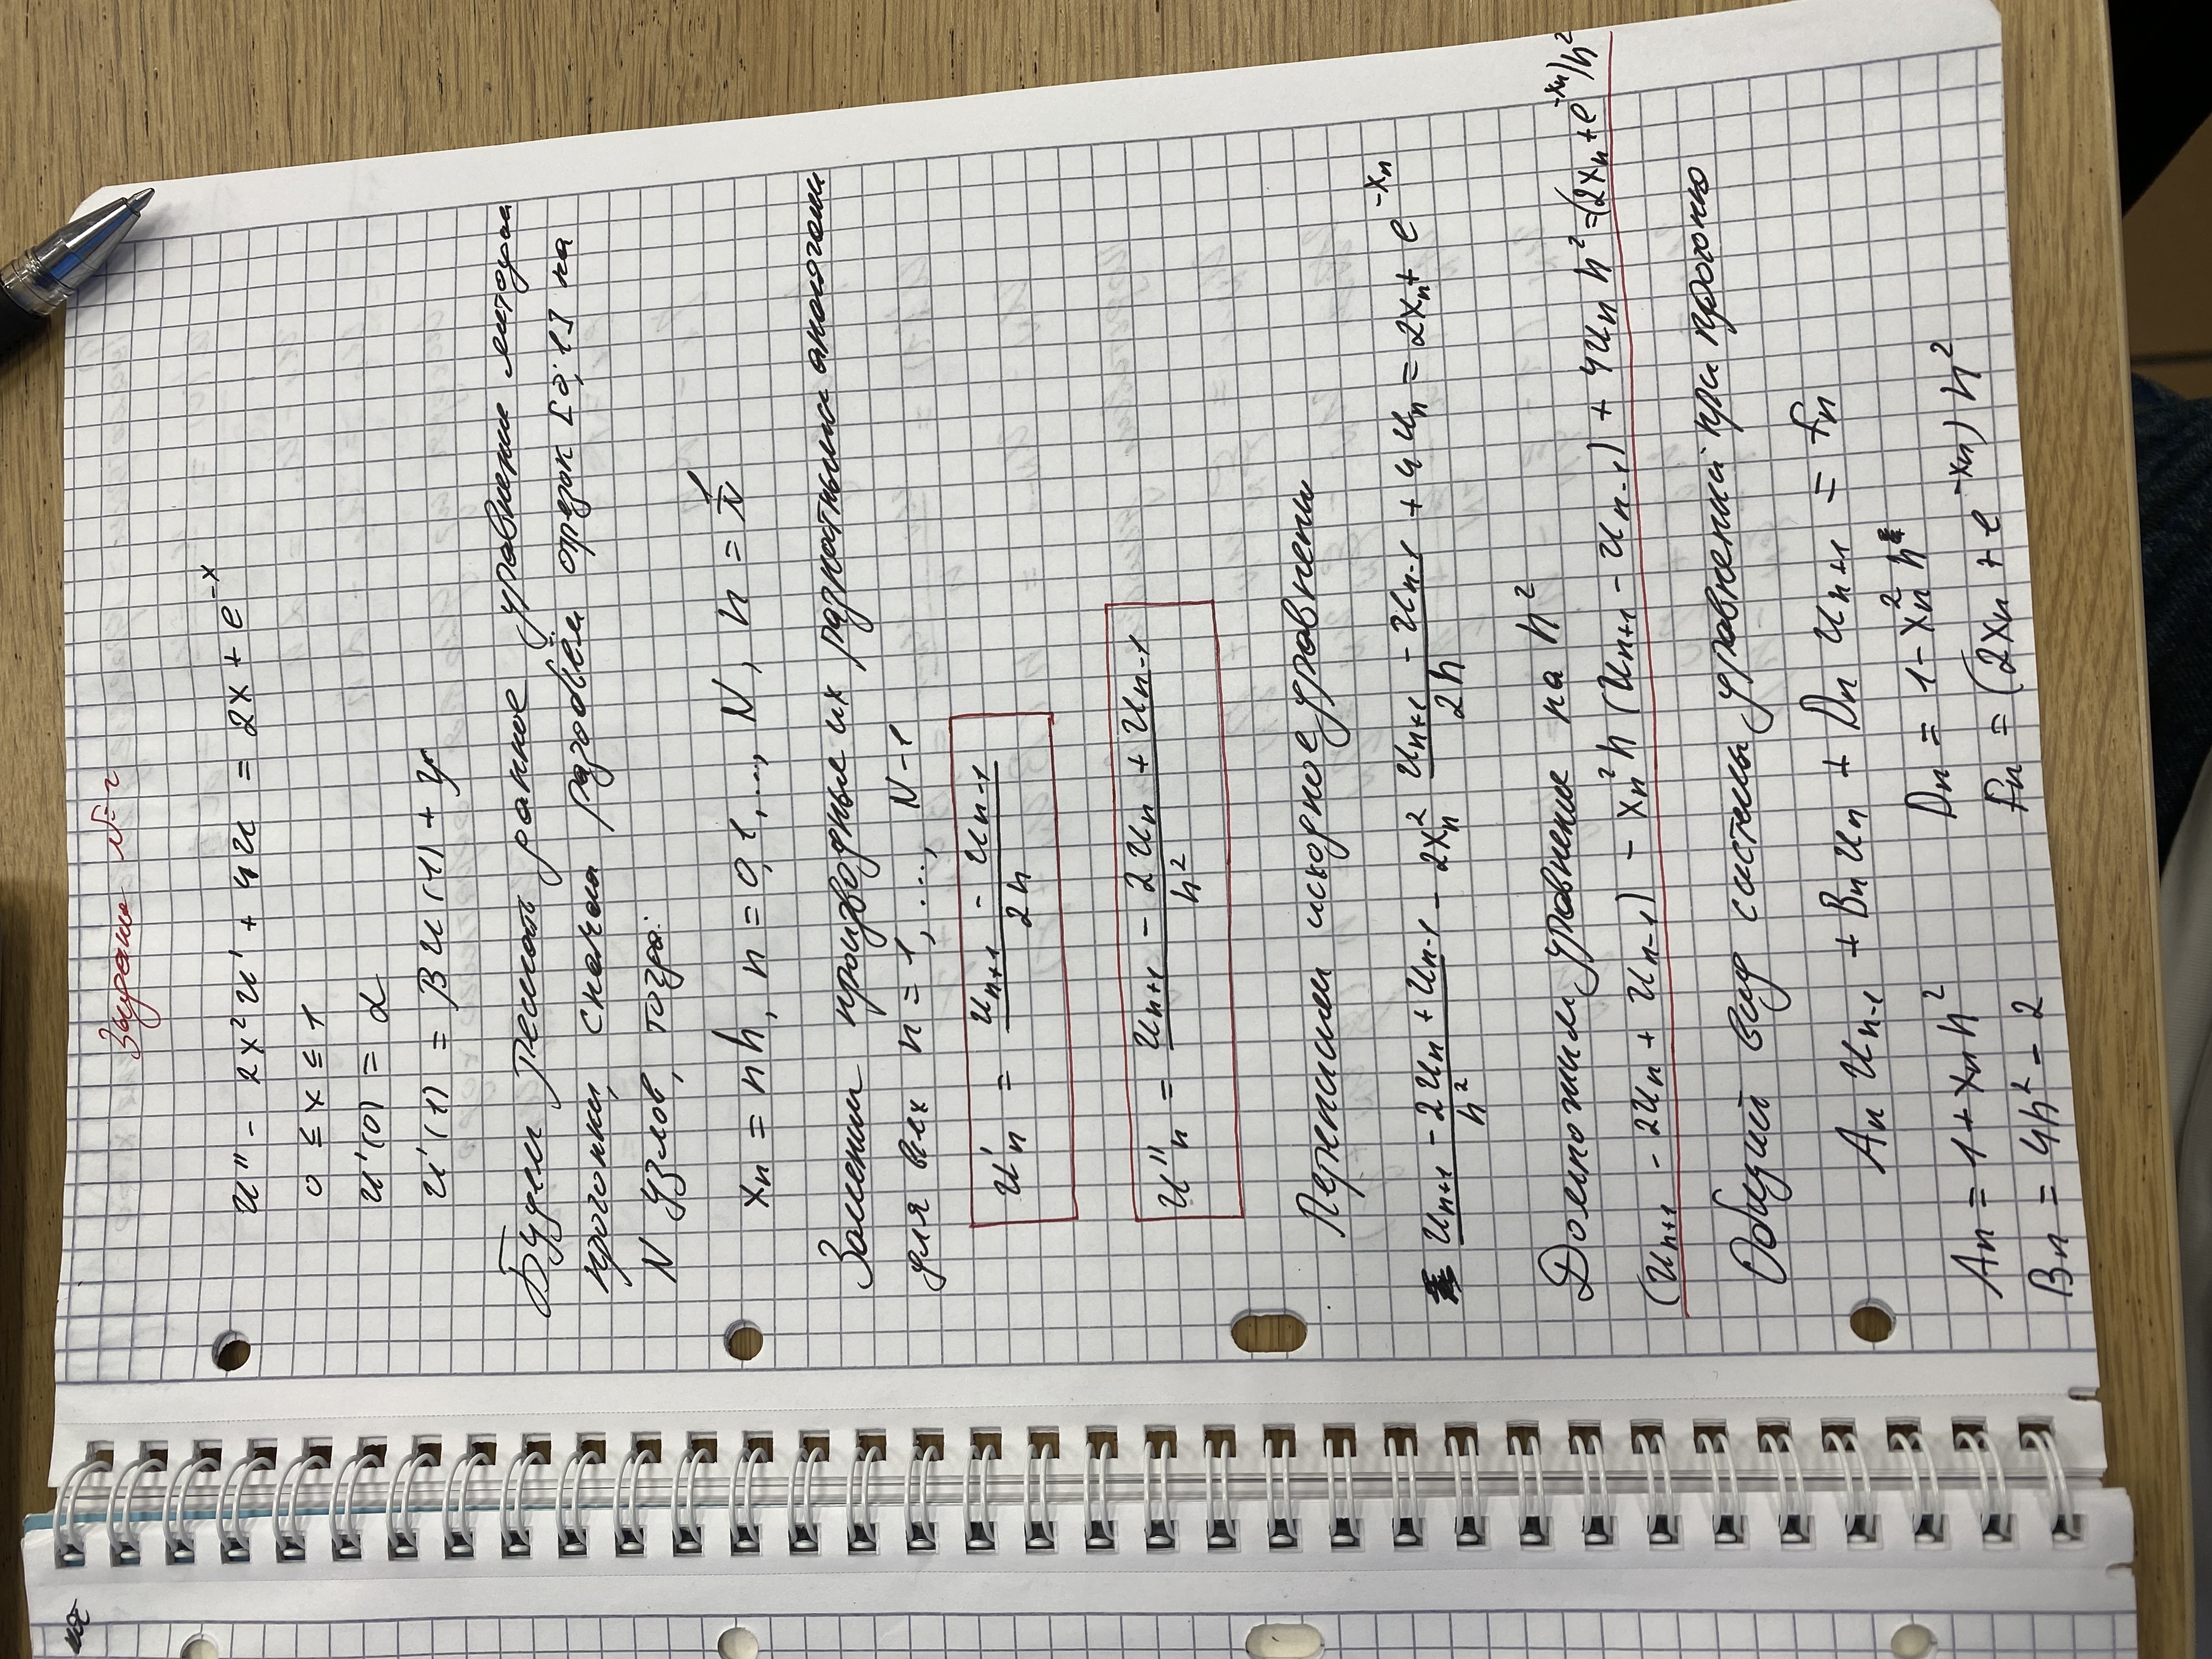 Задание №2
u'' - 2x²u' + 4u = 2x + e^{-x}
0 ≤ x ≤ 1
u'(0) = α
u'(1) = βu(1) + γ
Будем решать данное уравнение методом
прогонки, сначала разобьём отрезок [0; 1] на
N узлов, тогда:
x_n = nh, n = 0,1,..., N, h = 1/N
Заменим производные их разностными аналогами
для всех n = 1, ..., N-1
u'_n = (u_{n+1} - u_{n-1}) / 2h
u''_n = (u_{n+1} - 2u_n + u_{n-1}) / h²
Перепишем исходное уравнение
(u_{n+1} - 2u_n + u_{n-1}) / h² - 2x_n² (u_{n+1} - u_{n-1}) / 2h + 4u_n = 2x_n + e^{-x_n}
Домножим уравнение на h²
(u_{n+1} - 2u_n + u_{n-1}) - x_n² h (u_{n+1} - u_{n-1}) + 4u_n h² = (2x_n + e^{-x_n})h²
Общий вид системы уравнений при прогонке
A_n u_{n-1} + B_n u_n + D_n u_{n+1} = f_n
A_n = 1 + x_n h² D_n = 1 - x_n² h
B_n = 4h² - 2 f_n = (2x_n + e^{-x_n}) h²